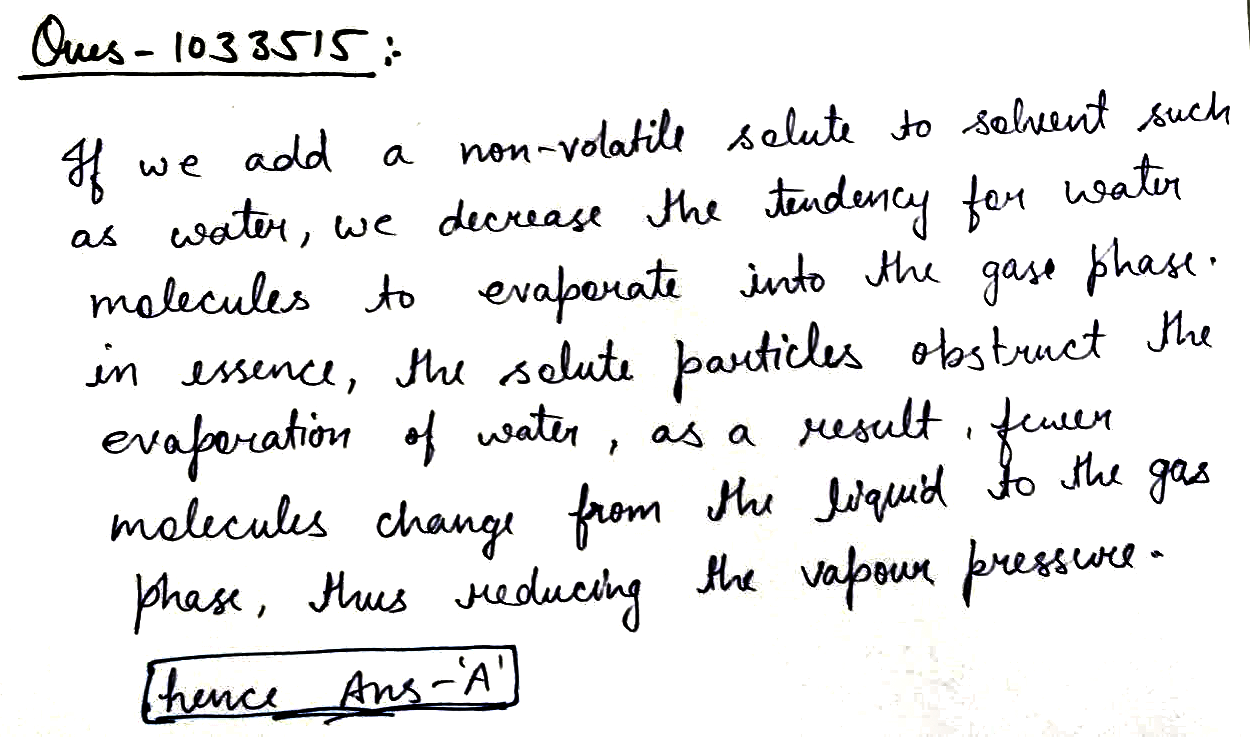 Ques - 1033515 :-
If we add a non-volatile solute to solvent such
as water, we decrease the tendency for water
molecules to evaporate into the gase phase.
in essence, the solute particles obstruct the
evaporation of water, as a result, fewer
molecules change from the liquid to the gas
phase, thus reducing the vapour pressure.
hence Ans - 'A'